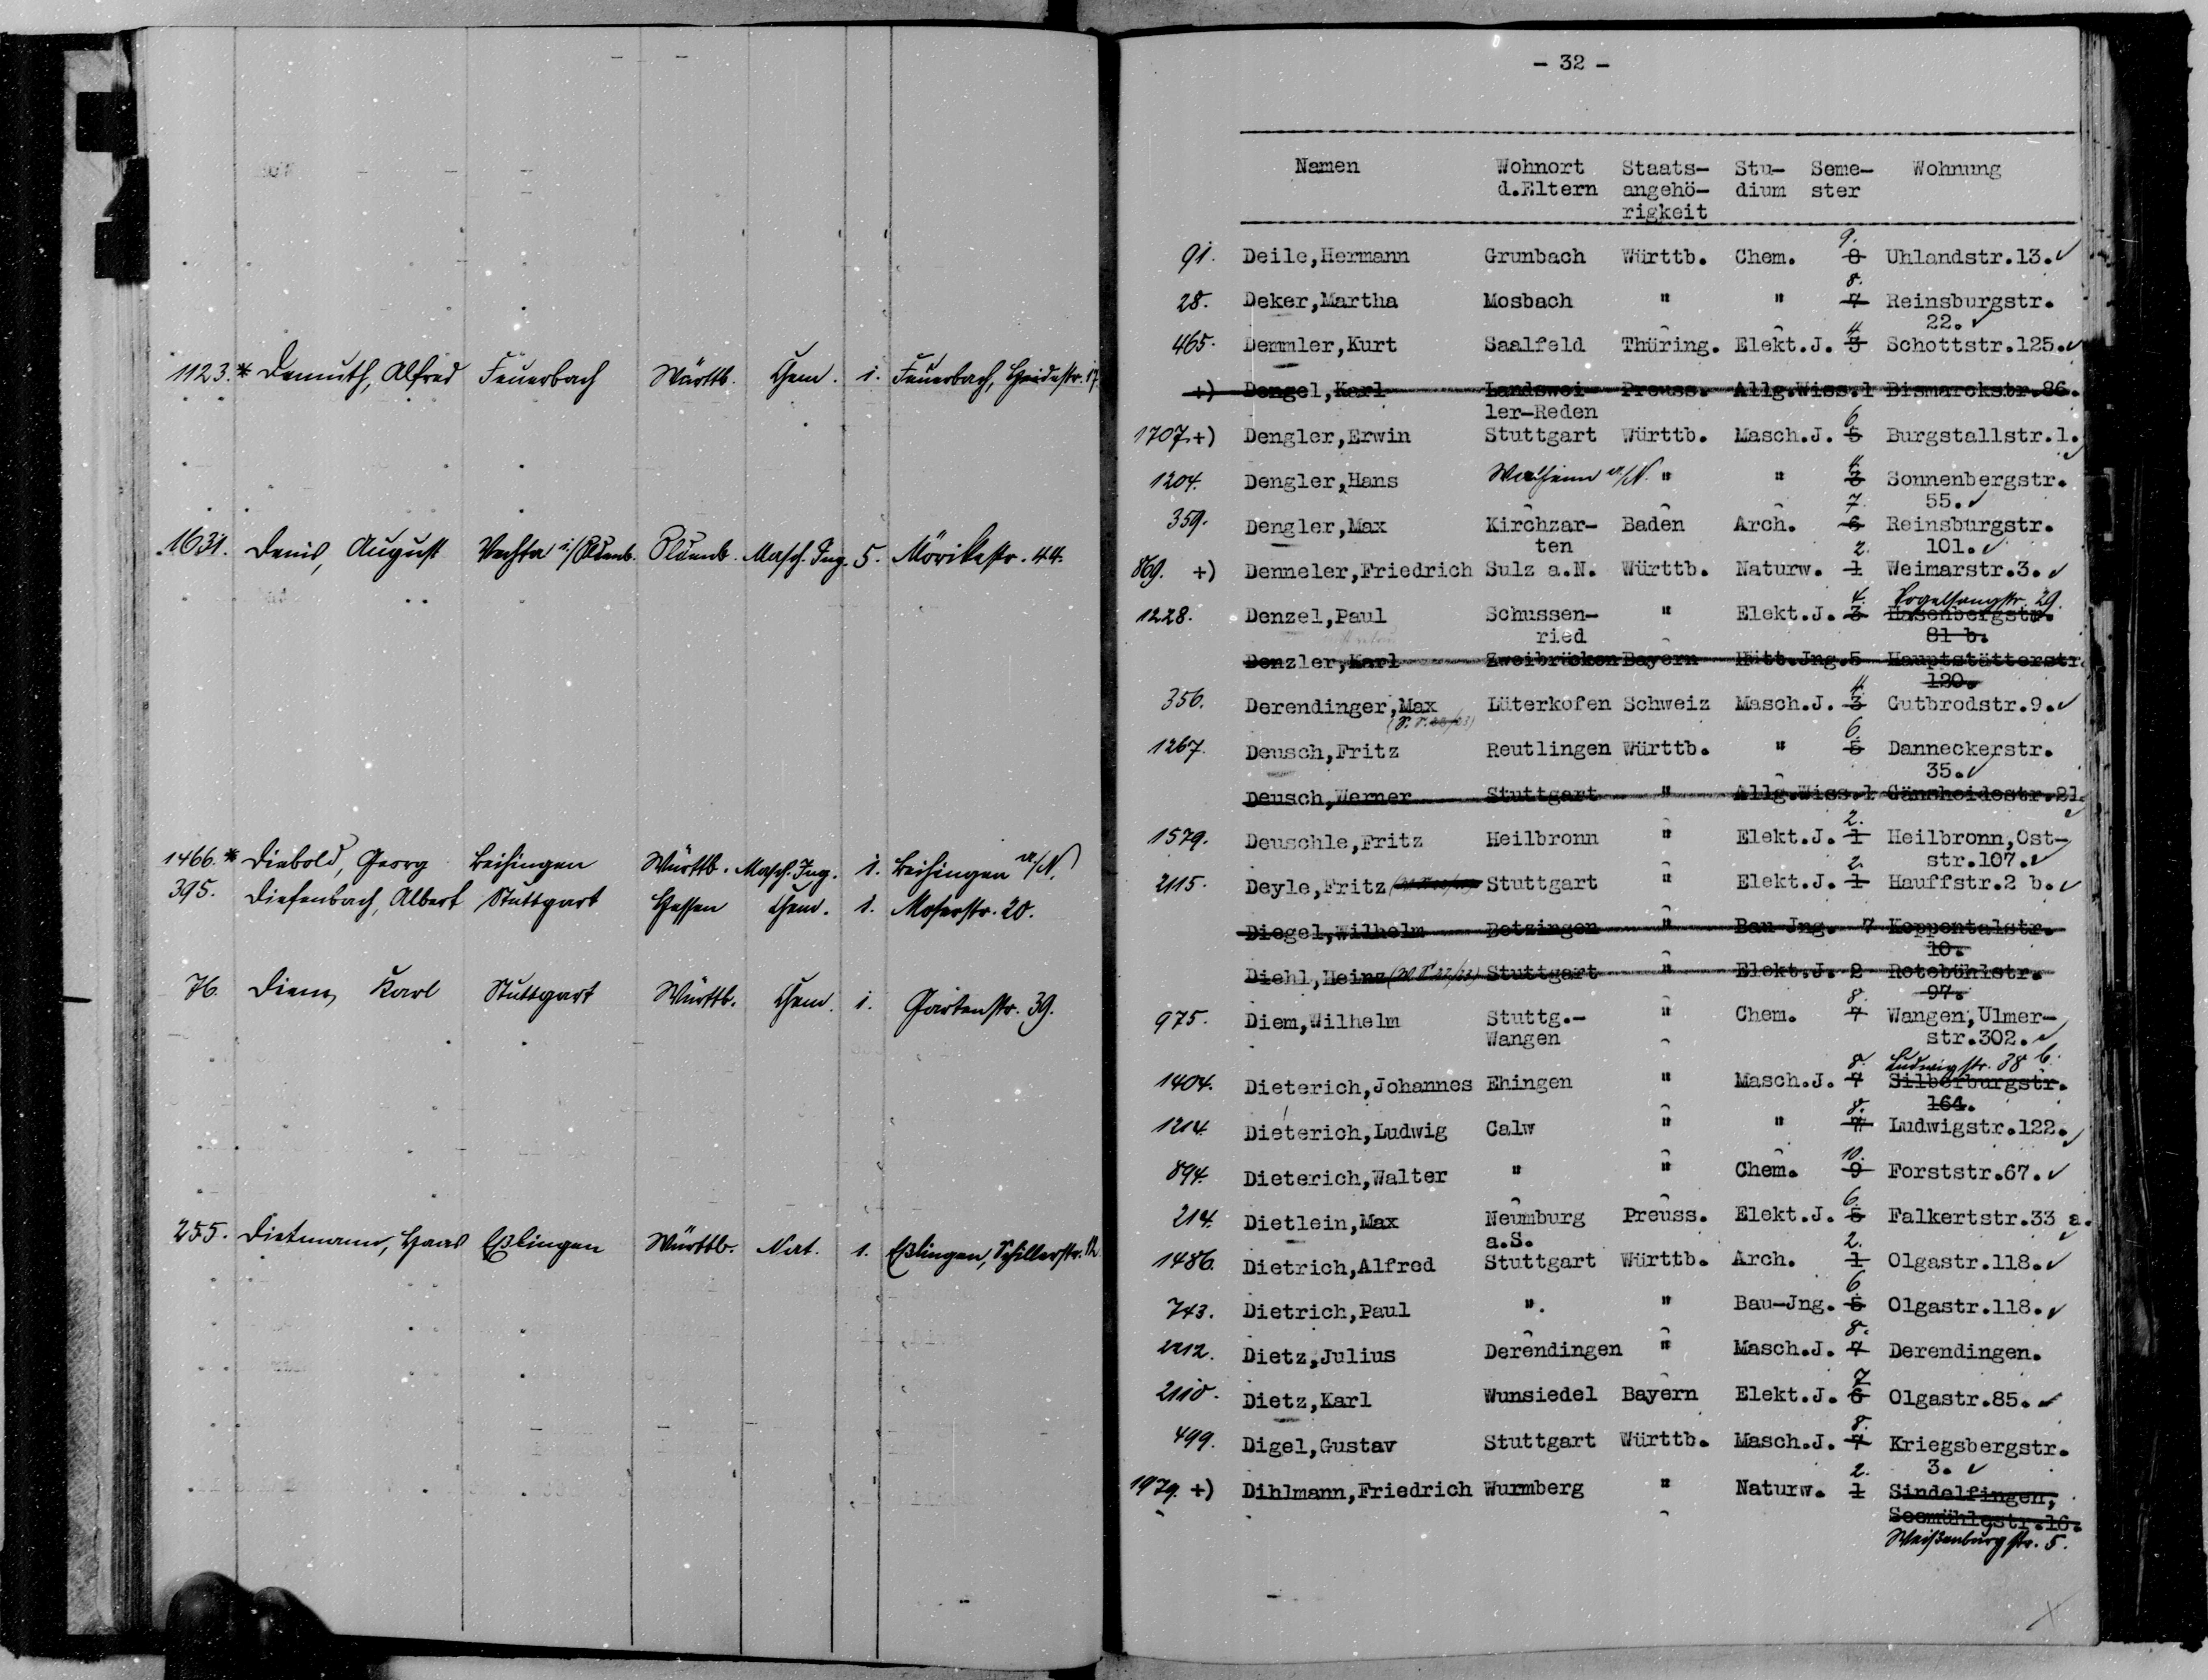 1123.* Demuth, Alfred Feuerbach Württb. Chem. 1. Feuerbach, Heidestr. 17
1631. Denis, August Vechta i/Oldenb. Oldenb. Masch. Ing. 5. Mörikestr. 44.
1466.* Diebold, Georg Beihingen Württb. Masch. Ing. 1. Beihingen a/N.
395. Diefenbach, Albert Stuttgart Hessen Chem. 1. Moserstr. 20.
76. Diem, Karl Stuttgart Württb. Chem. 1. Gartenstr. 39.
255. Dietmann, Hans Eßlingen Württb. Nat. 1. Eßlingen, Schillerstr. 12
- 32 -
Namen Wohnort Staats- Stu- Seme- Wohnung
d.Eltern angehö- dium ster
rigkeit
9.
91. Deile,Hermann Grunbach Württb. Chem. 8 Uhlandstr.13.
8.
28. Deker,Martha Mosbach " " 7 Reinsburgstr.
22.
4
465. Demmler,Kurt Saalfeld Thüring. Elekt.J. 3 Schottstr.125.
+) Dengel,Karl Landswei- Preuss. Allg.Wiss.1 Bismarckstr.86.
ler-Reden
6
1707.+) Dengler,Erwin Stuttgart Württb. Masch.J. 5 Burgstallstr.1.
4.
1204. Dengler,Hans Walheim a/N. " " 3 Sonnenbergstr.
7. 55.
359. Dengler,Max Kirchzar- Baden Arch. 6 Reinsburgstr.
ten 2. 101.
869. +) Denneler,Friedrich Sulz a.N. Württb. Naturw. 1 Weimarstr.3.
4. Vogelsangstr. 29.
1228. Denzel,Paul Schussen- " Elekt.J. 3 Hasenbergstr.
ried 81 b.
Denzler,Karl Zweibrücken Bayern Hütt.Jng.5 Hauptstätterstr.
4. 120.
356. Derendinger,Max Lüterkofen Schweiz Masch.J. 3 Gutbrodstr.9.
6.
1267. Deusch,Fritz Reutlingen Württb. " 5 Danneckerstr.
35.
Deusch,Werner Stuttgart " Allg.Wiss.1 Gänsheidestr.21.
2.
1579. Deuschle,Fritz Heilbronn " Elekt.J. 1 Heilbronn,Ost-
2. str.107.
2115. Deyle,Fritz Stuttgart " Elekt.J. 1 Hauffstr.2 b.
Diegel,Wilhelm Betzingen " Bau Jng. 7 Koppentalstr.
10.
Diehl,Heinz (W.S. 22/23) Stuttgart " Elekt.J. 2 Rotebühlstr.
8. 97.
975. Diem,Wilhelm Stuttg.- " Chem. 7 Wangen,Ulmer-
Wangen str.302.
8. Ludwigstr. 38 b.
1404. Dieterich,Johannes Ehingen " Masch.J. 7 Silberburgstr.
8. 164.
1214. Dieterich,Ludwig Calw " " 7 Ludwigstr.122.
10.
894. Dieterich,Walter " " Chem. 9 Forststr.67.
6.
214. Dietlein,Max Neumburg Preuss. Elekt.J. 5 Falkertstr.33 a.
a.S. 2.
1486. Dietrich,Alfred Stuttgart Württb. Arch. 1 Olgastr.118.
6
743. Dietrich,Paul " " Bau-Jng. 5 Olgastr.118.
8.
2212. Dietz,Julius Derendingen " Masch.J. 7 Derendingen.
7
2110. Dietz,Karl Wunsiedel Bayern Elekt.J. 6 Olgastr.85.
8.
499. Digel,Gustav Stuttgart Württb. Masch.J. 7 Kriegsbergstr.
2. 3.
1979. +) Dihlmann,Friedrich Wurmberg " Naturw. 1 Sindelfingen,
Seemühlestr.16.
Weißenburgstr. 5.